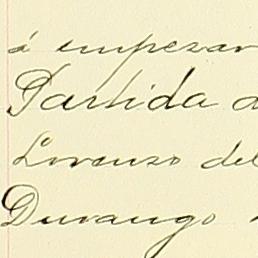 á empezar
Partida d
Lorenzo del
Durango